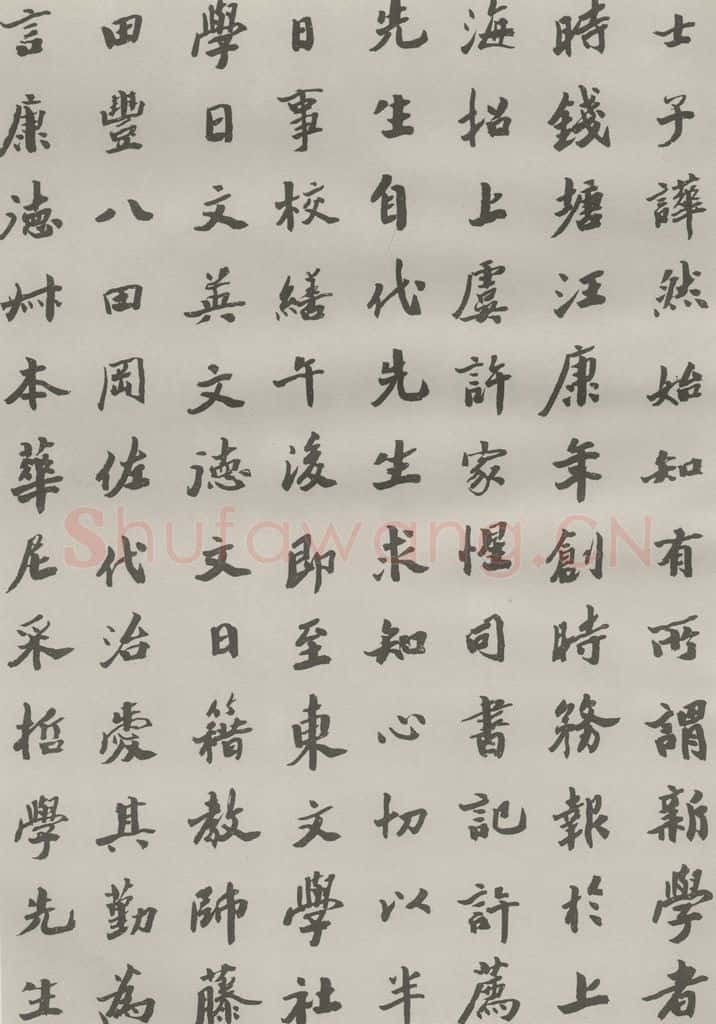 士子譁然始知有所謂新學者
時錢塘汪康年創時務報於上
海招上虞許家惺司書記許薦
先生自代先生求知心切以半
日事校繕午後即至東文學社
學日文英文德文日籍教師藤
田豐八田岡佐代治愛其勤為
言康德叔本華尼采哲學先生
Shufawang.CN